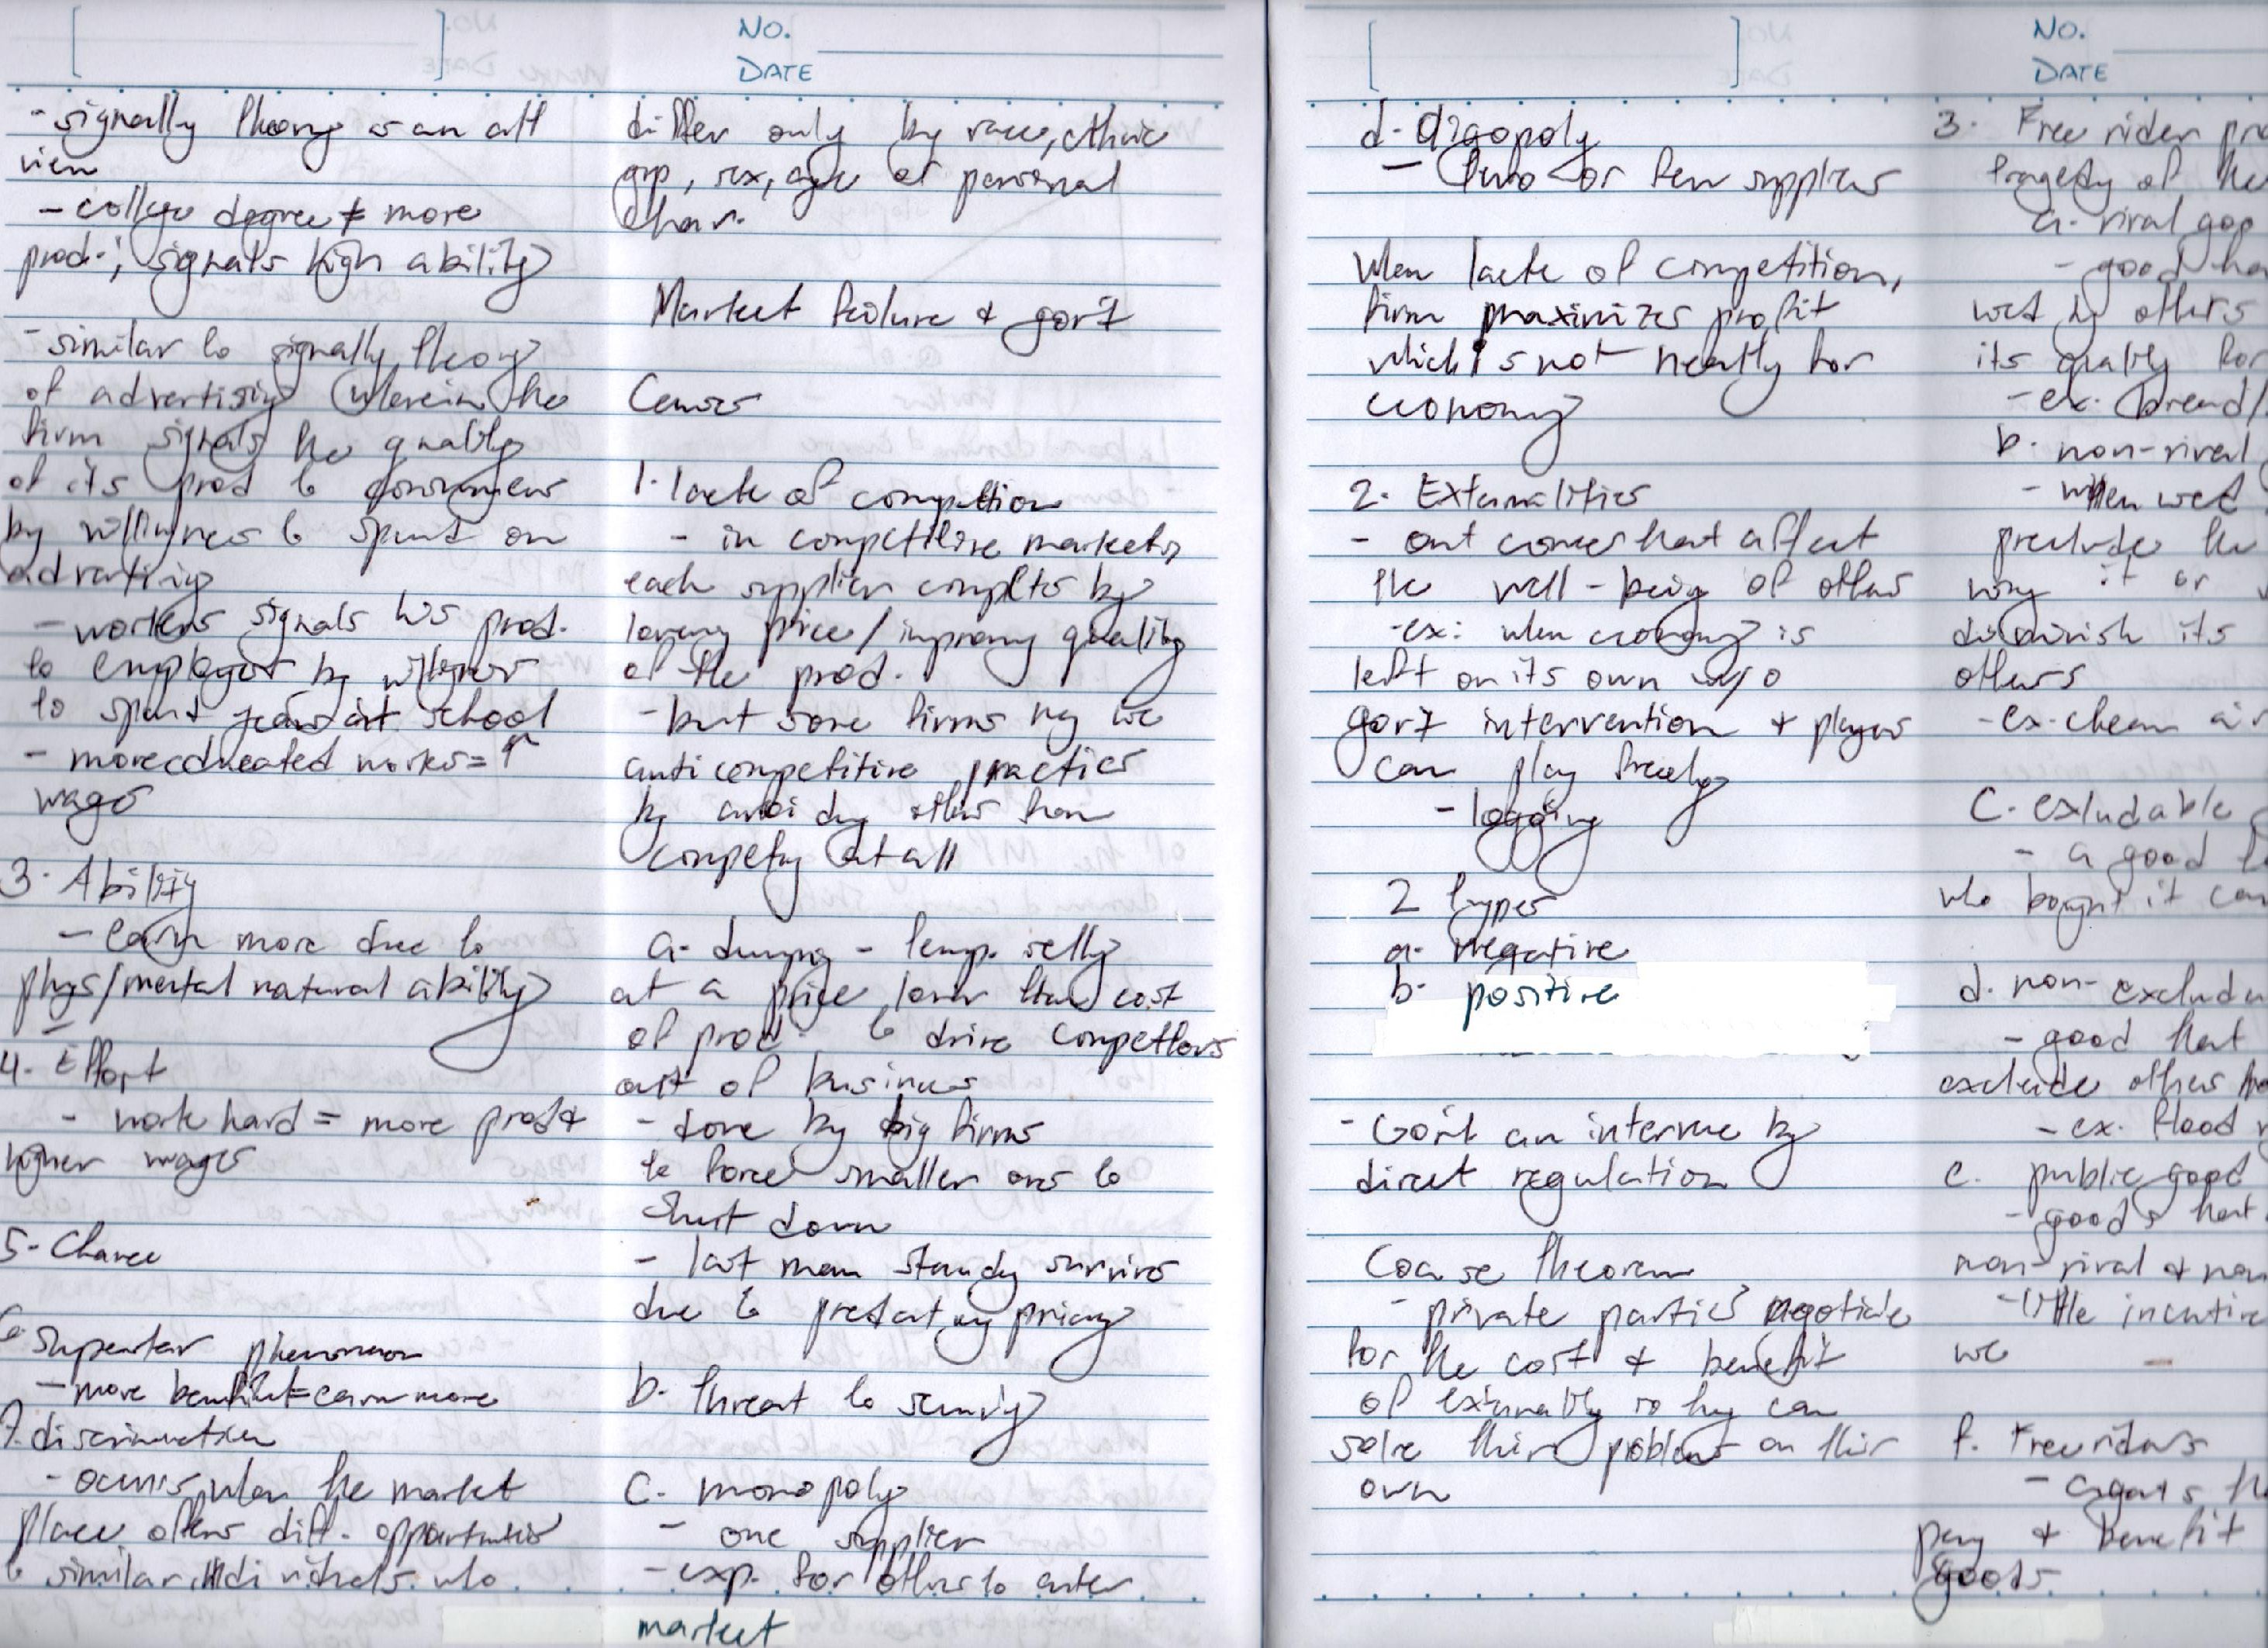 NO.
DATE
- signally theory is an alt
view
- college degree ≠ more
prod.; signals high ability
- similar to signally theory
of advertising wherein the
firm signals the quality
of its prod to consumers
by willingness to spent on
advertising
- workers signals his prod.
to employer by willgnes
to spent years at school
- more educated workers = ↑
wages
3. Ability
- earn more due to
phys/mental natural ability
4. Effort
- work hard = more prod &
higher wages
5- Chance
6 Superstar phenomenon
- more benefit = earn more
7. discrimination
- occurs when the market
place offers diff. opportunities
to similar individuals who
differ only by race, ethnic
grp, sex, age or personal
char.
Market failure & gov't
Causes
1. lack of competion
- in competitive markets,
each supplier compets by
lowering price/improvng quality
of the prod.
- but some firms my use
anticompetitive practices
by avoidng others from
competng at all
a. dumpng - temp. sellg
at a price lower than cost
of prod. to drive competitors
out of business
- done by big firms
to force smaller ones to
shut down
- last man standg survives
due to predatory pricing
b. threat to security
c. monopoly
- one supplier
- exp. for others to enter
market
NO.
DATE
d. Oligopoly
- two or few suppliers
When lack of competition,
firm maximizes profit
which is not healthy for
economy
2. Externalities
- out comes that affect
the well-being of others
-ex: when economy is
left on its own w/o
gov't intervention & players
can play freely
- logging
2 types
a. negative
b. positive
- Gov't can intervene by
direct regulation
Coarse theorem
- private parties negotiate
for the cost & benefit
of externality so they can
solve their problems on their
own
3. Free rider
tragedy of the
a. rival
- good
used by others
its quality for
-ex. bread/
b. non-rival
- when used
preclude the
it or
diminish its
others
-ex. clean
c. exludable
- a good
who bought it can
d. non-
- good that
exclude others
-ex. flood
e. public good
- goods that
non-rival & non
- little incentive
use
f. Free riders
- agents
pay & benefit
goods